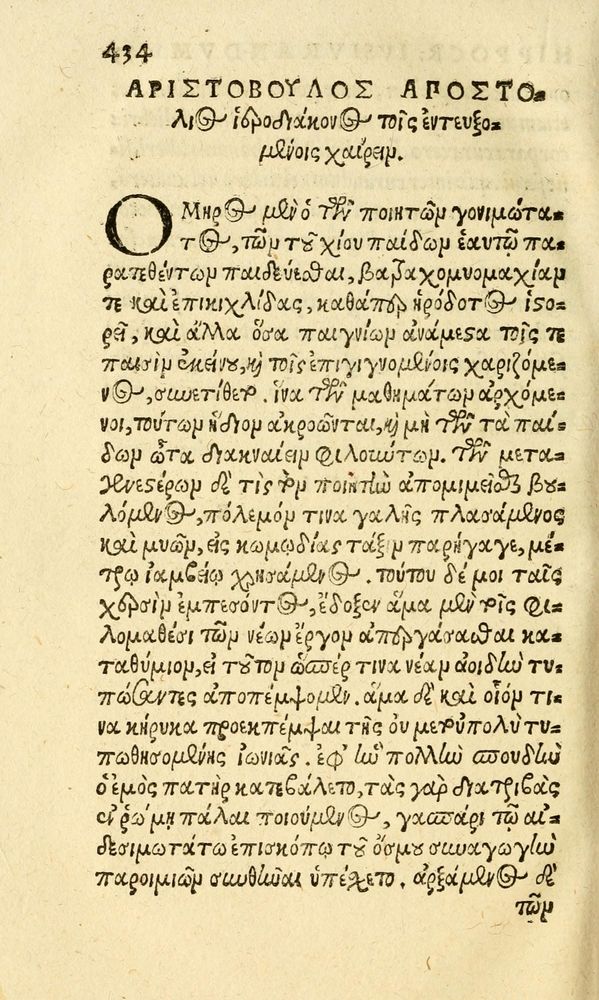 434
ΑΡΙΣΤΟΒΟΥΛΟΣ ΑΠΟΣΤΟ-
λιος ἱεροδιάκονος τοῖς ἐντευξο-
μένοις χαίρειν.
ΟΜηρος μὲν ὁ τῶν ποιητῶν γονιμώτα-
τος, τῶν τοῦ χίου παίδων ἑαυτῷ πα-
ρατεθέντων παιδεύεσθαι, βατραχομυομαχίαν
τε καὶ ἐπικιχλίδας, καθάπερ ηρόδοτος ἱστο-
ρεῖ, καὶ ἄλλα ὅσα παιγνίων ἀνάμεστα τοῖς τε
παισὶν ἐκείνου, καὶ τοῖς ἐπιγιγνομένοις χαριζόμε-
νος, συνετίθει. ἵνα τῶν μαθημάτων ἀρχόμε-
νοι, τούτων ἥδιον ἀκροῶνται, καὶ μὴ τῶν τὰ παί-
δων ὦτα διακναίειν φιλούντων. τῶν μετα-
γενεστέρων δέ τις τὸν ποιητὴν ἀπομιμεῖσθαι βου-
λόμενος, πόλεμόν τινα γαλῆς πλασάμενος
καὶ μυῶν, εἰς κωμῳδίας τάξιν παρήγαγε, μέ-
τρῳ ἰαμβείῳ χρησάμενος. τούτου δέ μοι ταῖς
χερσὶν ἐμπεσόντος, ἔδοξεν ἅμα μὲν τοῖς φι-
λομαθέσι τῶν νέων ἔργον ἀπεργάσασθαι κα-
ταθύμιον, εἰ τοῦτον ὥσπέρ τινα νέαν ἀοιδὴν τυ-
πώσαντες ἀποπέμψομεν. ἅμα δὲ καὶ οἷόν τι-
να κήρυκα προεκπέμψαι τῆς οὐ μετὰ πολὺ τυ-
πωθησομένης ἰωνιᾶς. ἐφ' ἣν πολλὴν σπουδὴν
ὁ ἐμὸς πατὴρ κατεβάλετο, τὰς γὰρ διατριβὰς
ἐν ῥώμῃ πάλαι ποιούμενος, γασπάρι τῷ αἰ-
δεσιμωτάτῳ ἐπισκόπῳ τοῦ ὄσμου συναγωγὴν
παροιμιῶν συνθεῖναι ὑπέσχετο. ἀρξάμενος δὲ
τῶν